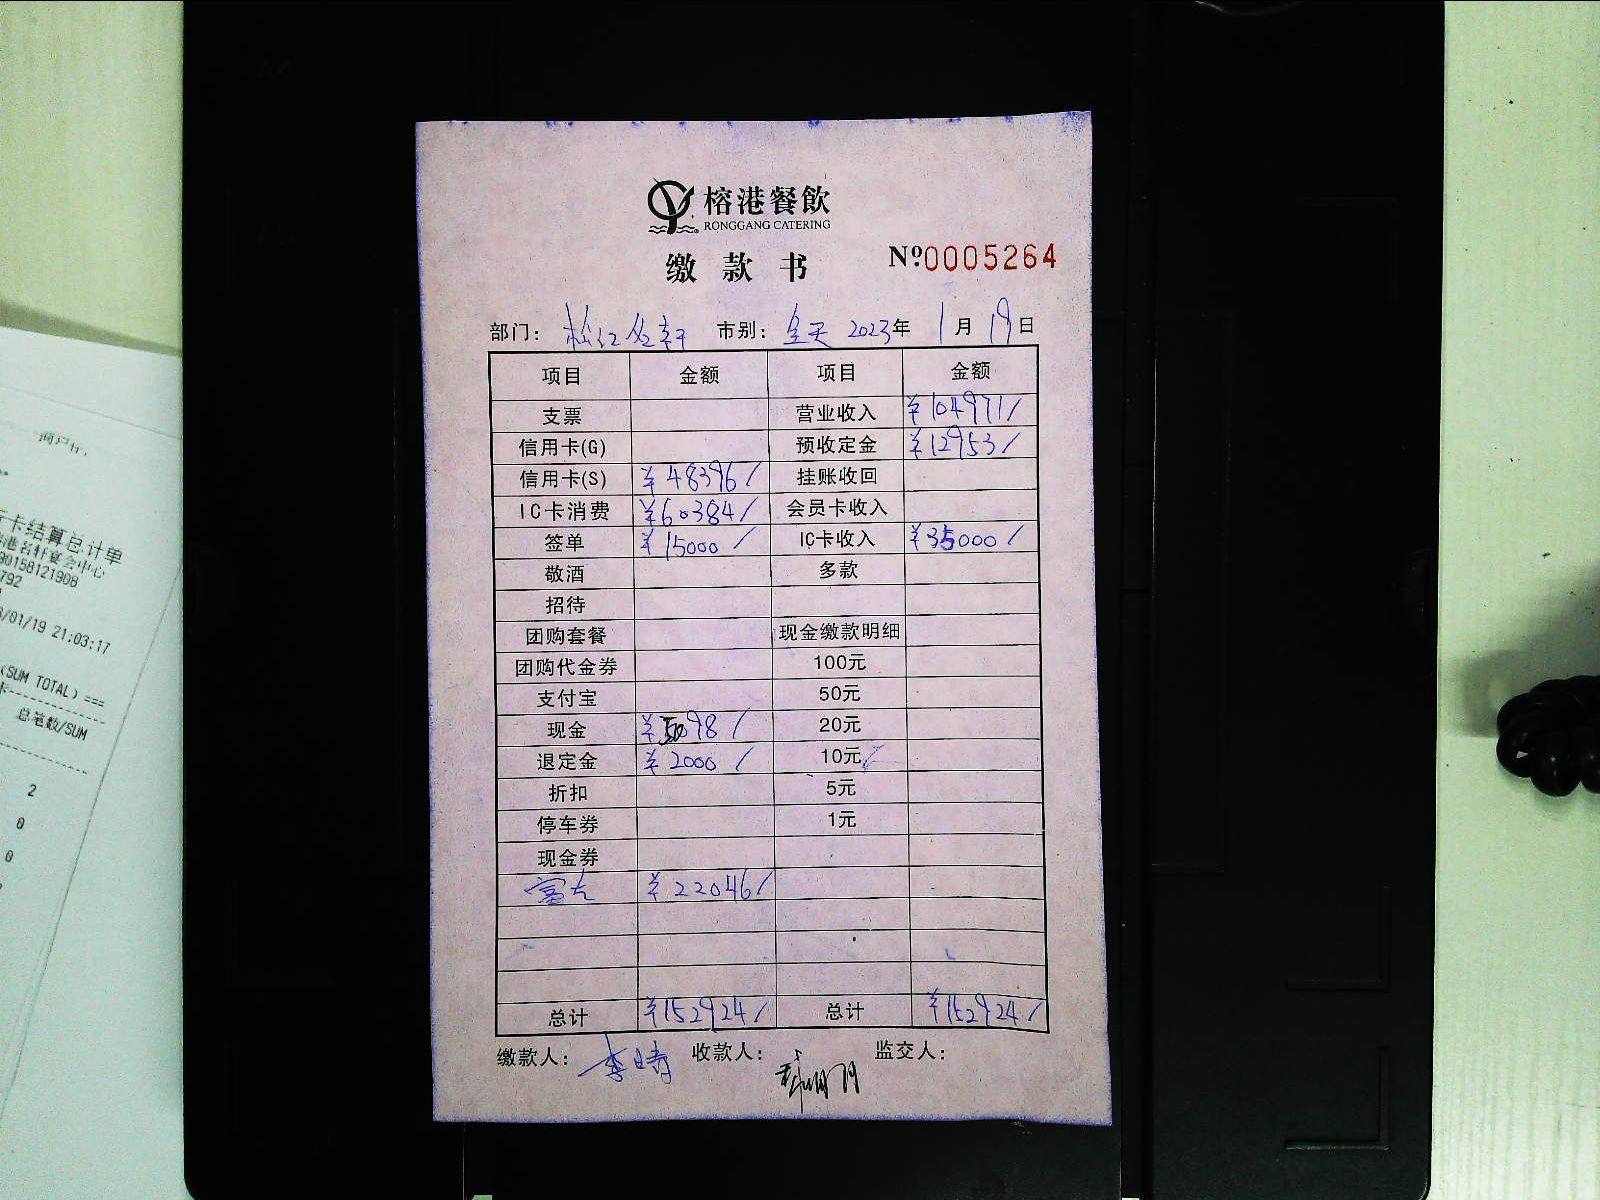 榕港餐飲
RONGGANG CATERING
缴款书 №0005264
部门: 松江名轩 市别: 全天 2023年 1月 19日
项目 金额 项目 金额
支票 营业收入 ¥104971/
信用卡(G) 预收定金 ¥12953/
信用卡(S) ¥48396/ 挂账收回
IC卡消费 ¥60384/ 会员卡收入
签单 ¥15000/ IC卡收入 ¥35000/
敬酒 多款
招待
团购套餐 现金缴款明细
团购代金券 100元
支付宝 50元
现金 ¥5098/ 20元
退定金 ¥2000/ 10元
折扣 5元
停车券 1元
现金券
富友 ¥22046/
总计 ¥152924/ 总计 ¥152924/
缴款人: 李晴 收款人: 监交人:
卡结算总计单
港名轩宴会中心
90158121908
792
/01/19 21:03:17
(SUM TOTAL) ===
总笔数/SUM
2
0
0